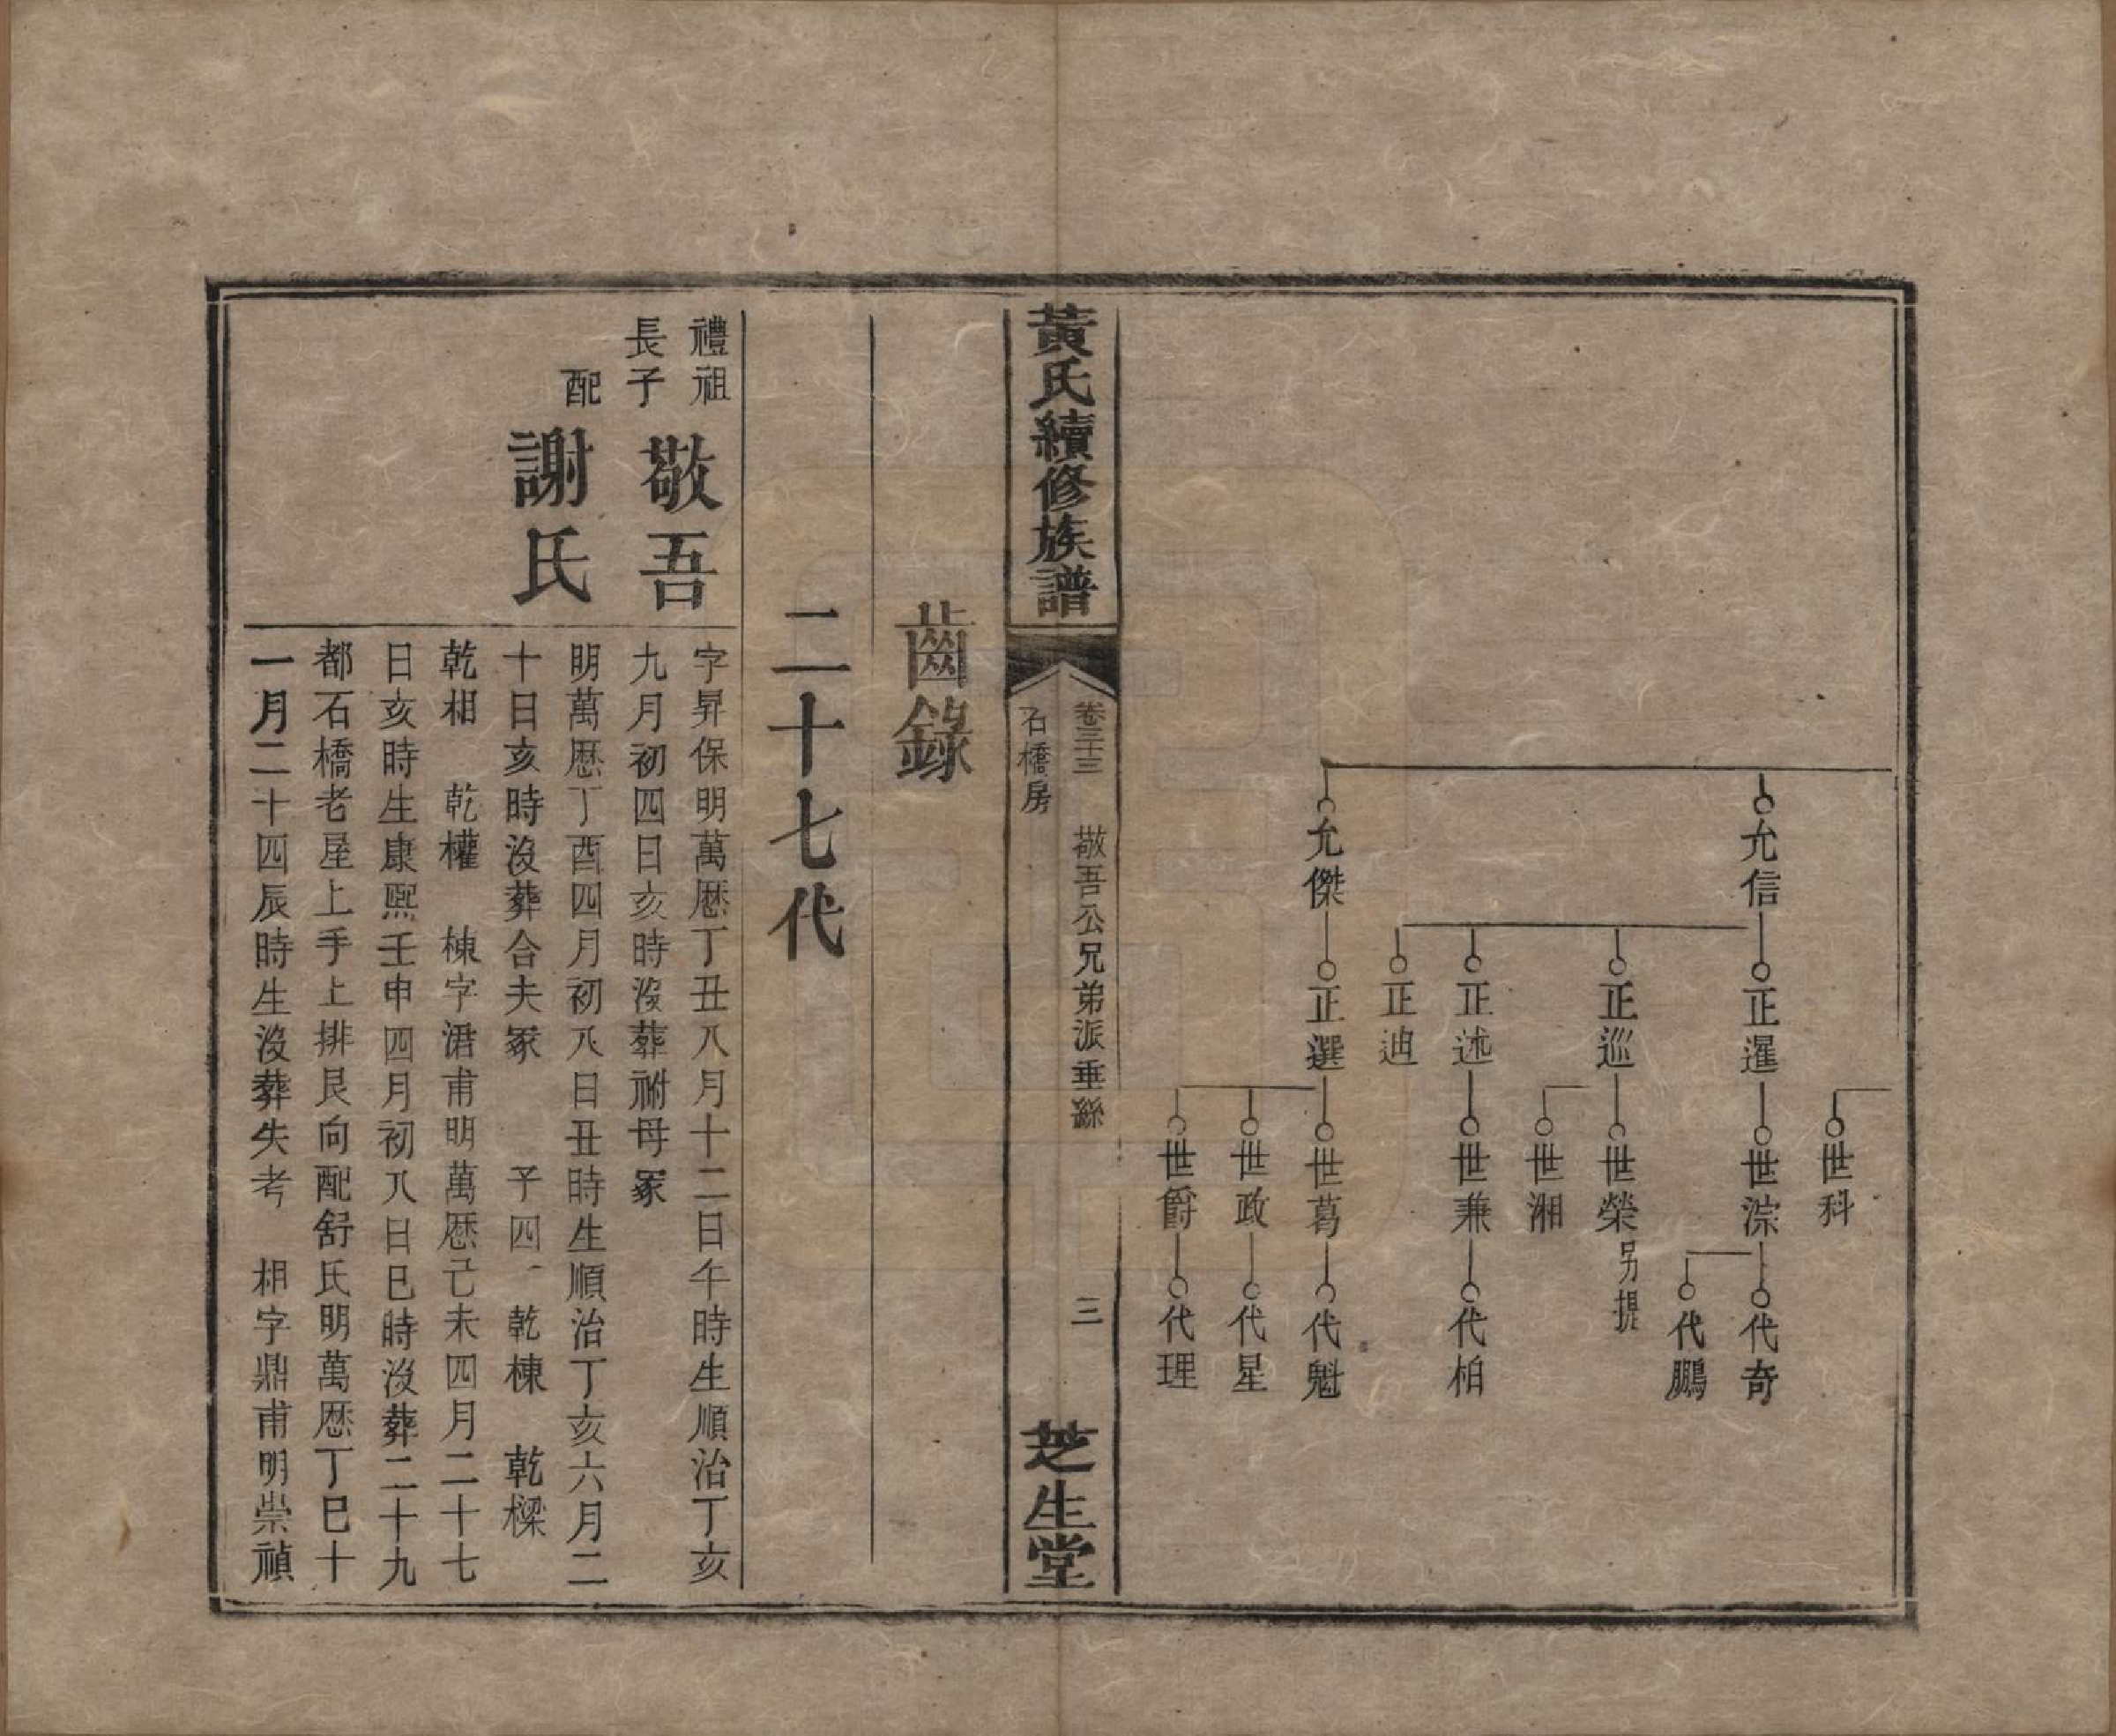 世科
允信 正暹 世淙 代奇
代鵬
正巡 世榮 另提
世湘
正述 世兼 代柏
正迪
允傑 正選 世葛 代魁
世政 代星
世爵 代理
黃氏續修族譜
卷三十三 敬吾公兄弟派垂絲 三
石橋房
芝生堂
齒錄
二十七代
禮祖
長子
敬吾
配
謝氏
字昇保明萬厯丁丑八月十二日午時生順治丁亥
九月初四日亥時沒葬祔母冢
明萬厯丁酉四月初八日丑時生順治丁亥六月二
十日亥時沒葬合夫冢 子四 乾棟 乾樑
乾相 乾權 棟字涒甫明萬厯己未四月二十七
日亥時生康熙壬申四月初八日巳時沒葬二十九
都石橋老屋上手上排艮向配舒氏明萬厯丁巳十
一月二十四辰時生沒葬失考 相字鼎甫明崇禎